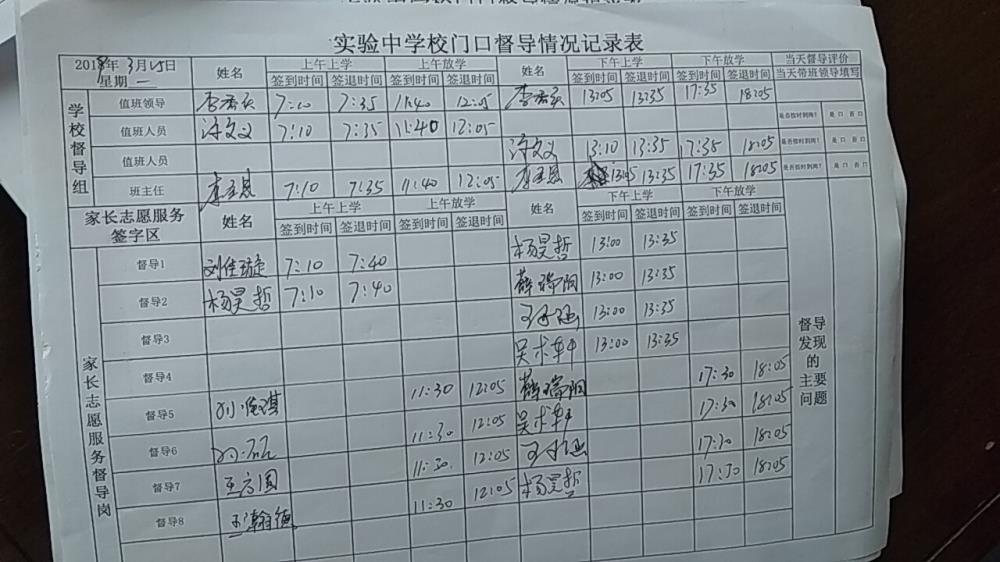 实验中学校门口督导情况记录表
2018年3月15日 星期一 姓名 上午上学 上午放学 姓名 下午上学 下午放学 当天督导评价
签到时间 签退时间 签到时间 签退时间 签到时间 签退时间 签到时间 签退时间 当天带班领导填写
学校督导组
值班领导 7:10 7:35 11:40 12:05 13:05 13:35 17:35 18:05
值班人员 7:10 7:35 11:40 12:05 是否按时到岗? 是 口 否 口
值班人员 13:10 13:35 17:35 18:05 是否按时到岗? 是 口 否 口
班主任 7:10 7:35 11:40 12:05 13:05 13:35 17:35 18:05 是否按时到岗? 是 口 否 口
家长志愿服务签字区 姓名 上午上学 上午放学 姓名 下午上学 下午放学
签到时间 签退时间 签到时间 签退时间 签到时间 签退时间 签到时间 签退时间
家长志愿服务督导岗
督导1 刘佳璇 7:10 7:40 杨昊哲 13:00 13:35
督导2 杨昊哲 7:10 7:40 薛瑞阳 13:00 13:35
督导3 13:00 13:35
督导4 吴术轩 13:00 13:35
督导5 11:30 12:05 薛瑞阳 17:30 18:05
督导6 11:30 12:05 吴术轩 17:30 18:05
督导7 王方圆 11:30 12:05 17:30 18:05
督导8 王瀚德 11:30 12:05 杨昊哲 17:30 18:05
督导发现的主要问题